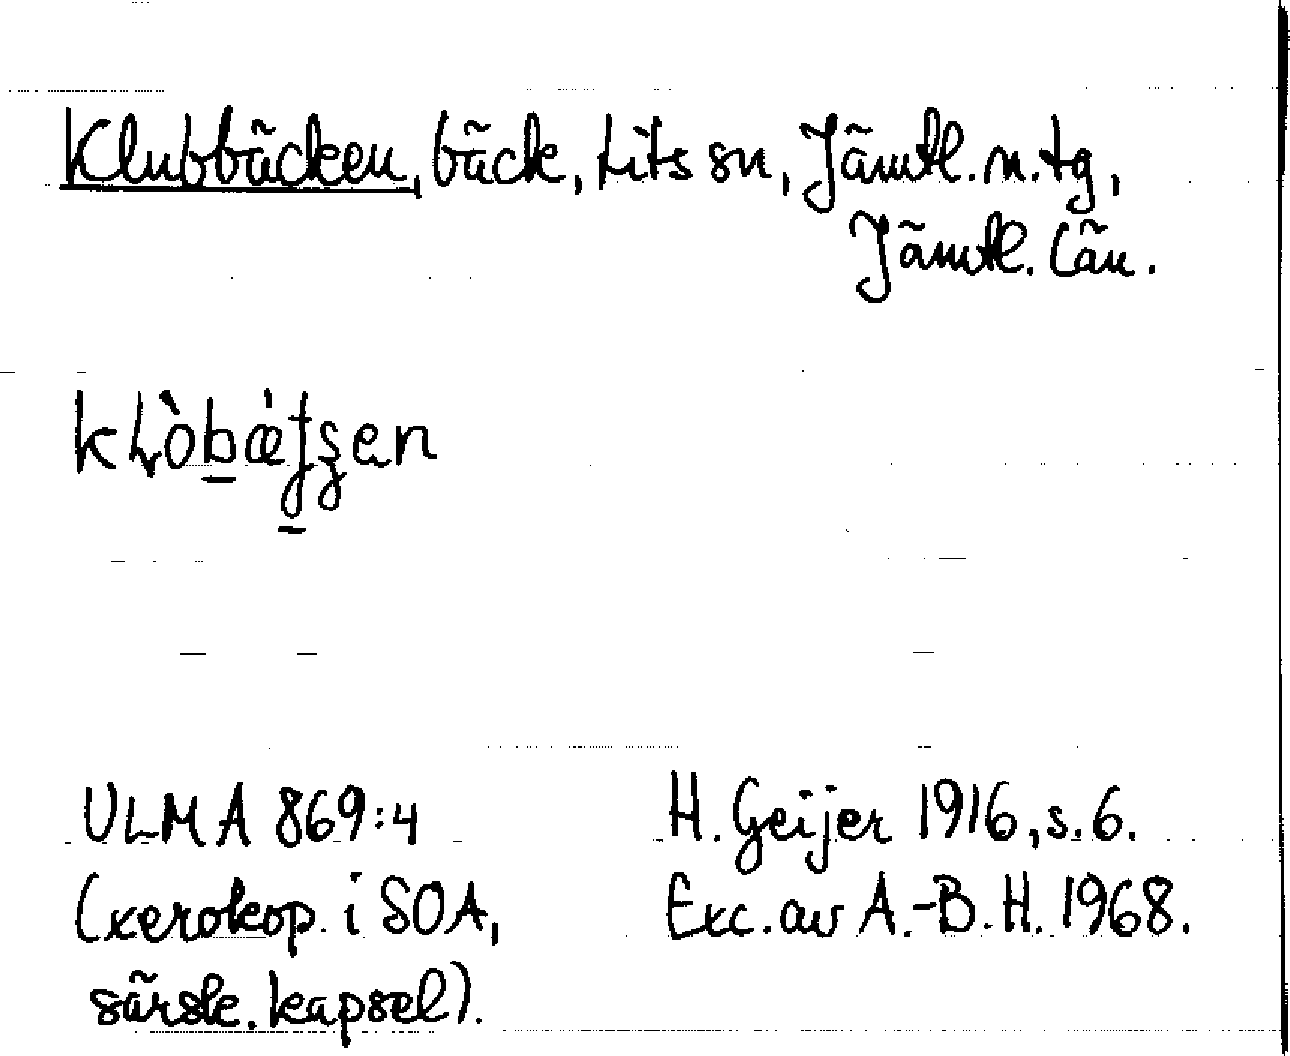 Klubbäcken, bäck, Lits sn, Jämtl. n. tg,
Jämtl. län.
ULMA 869:4
(xerokop. i SOA,
särsk. kapsel).
H. Geijer 1916, s. 6.
Exc. av A.-B. H. 1968.